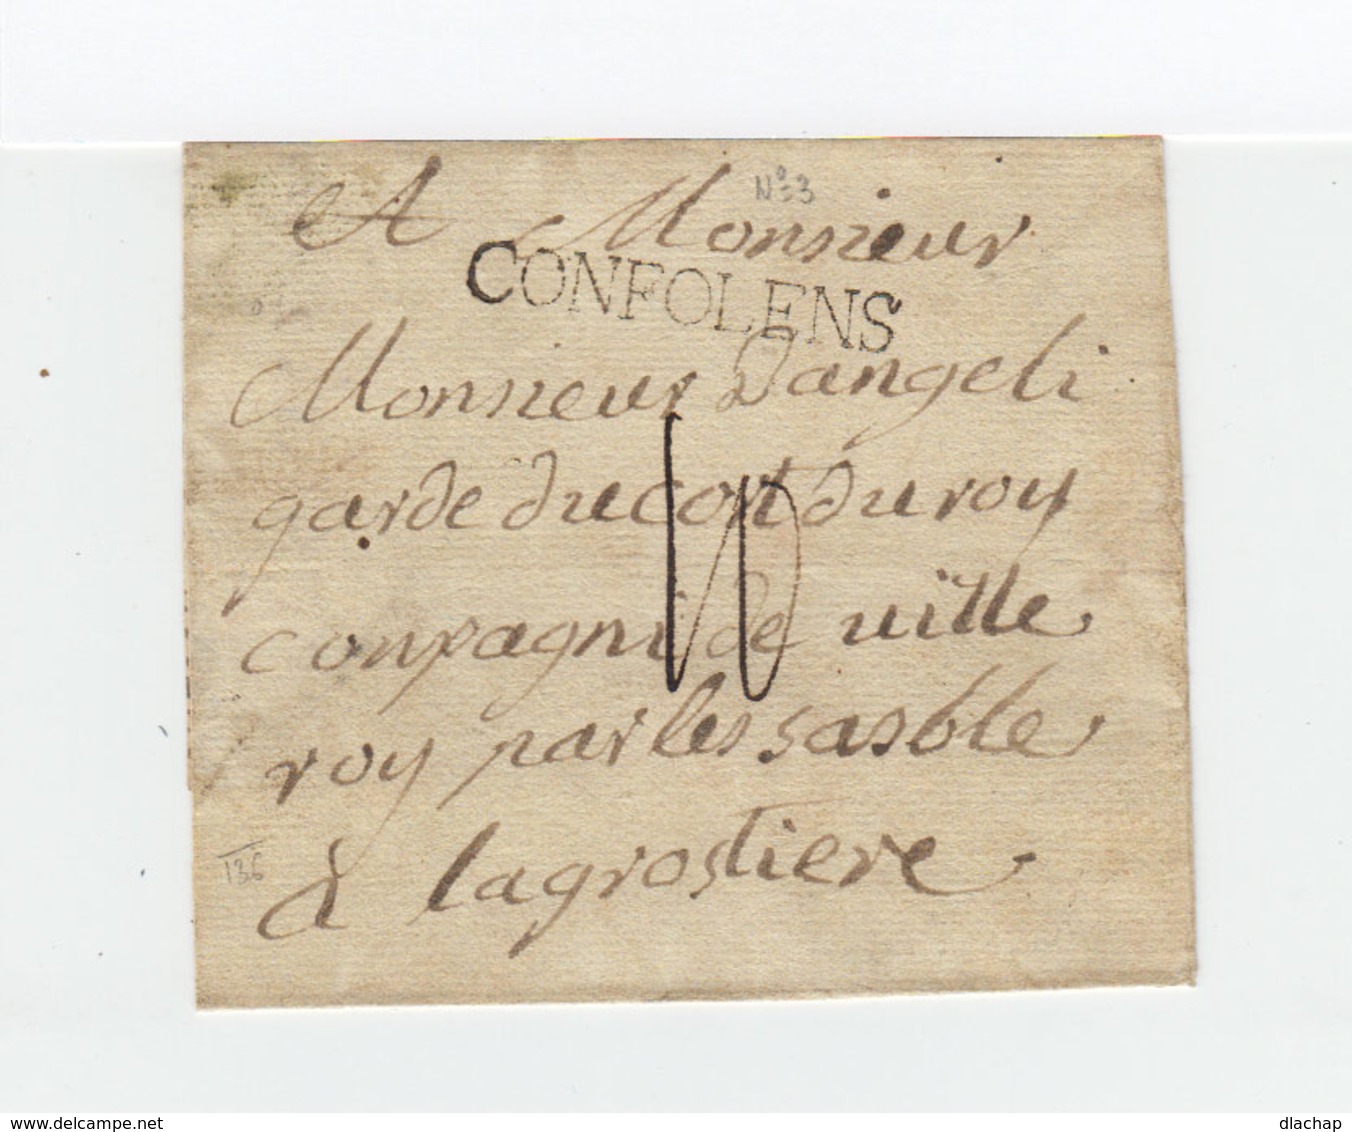 N° 3
A Monsieur
CONFOLENS
Monsieur Dangeli
garde ducort du roy
10
compagni de uille
roy par les sasble
136
à lagrostiere
delcampe.net
dlachap